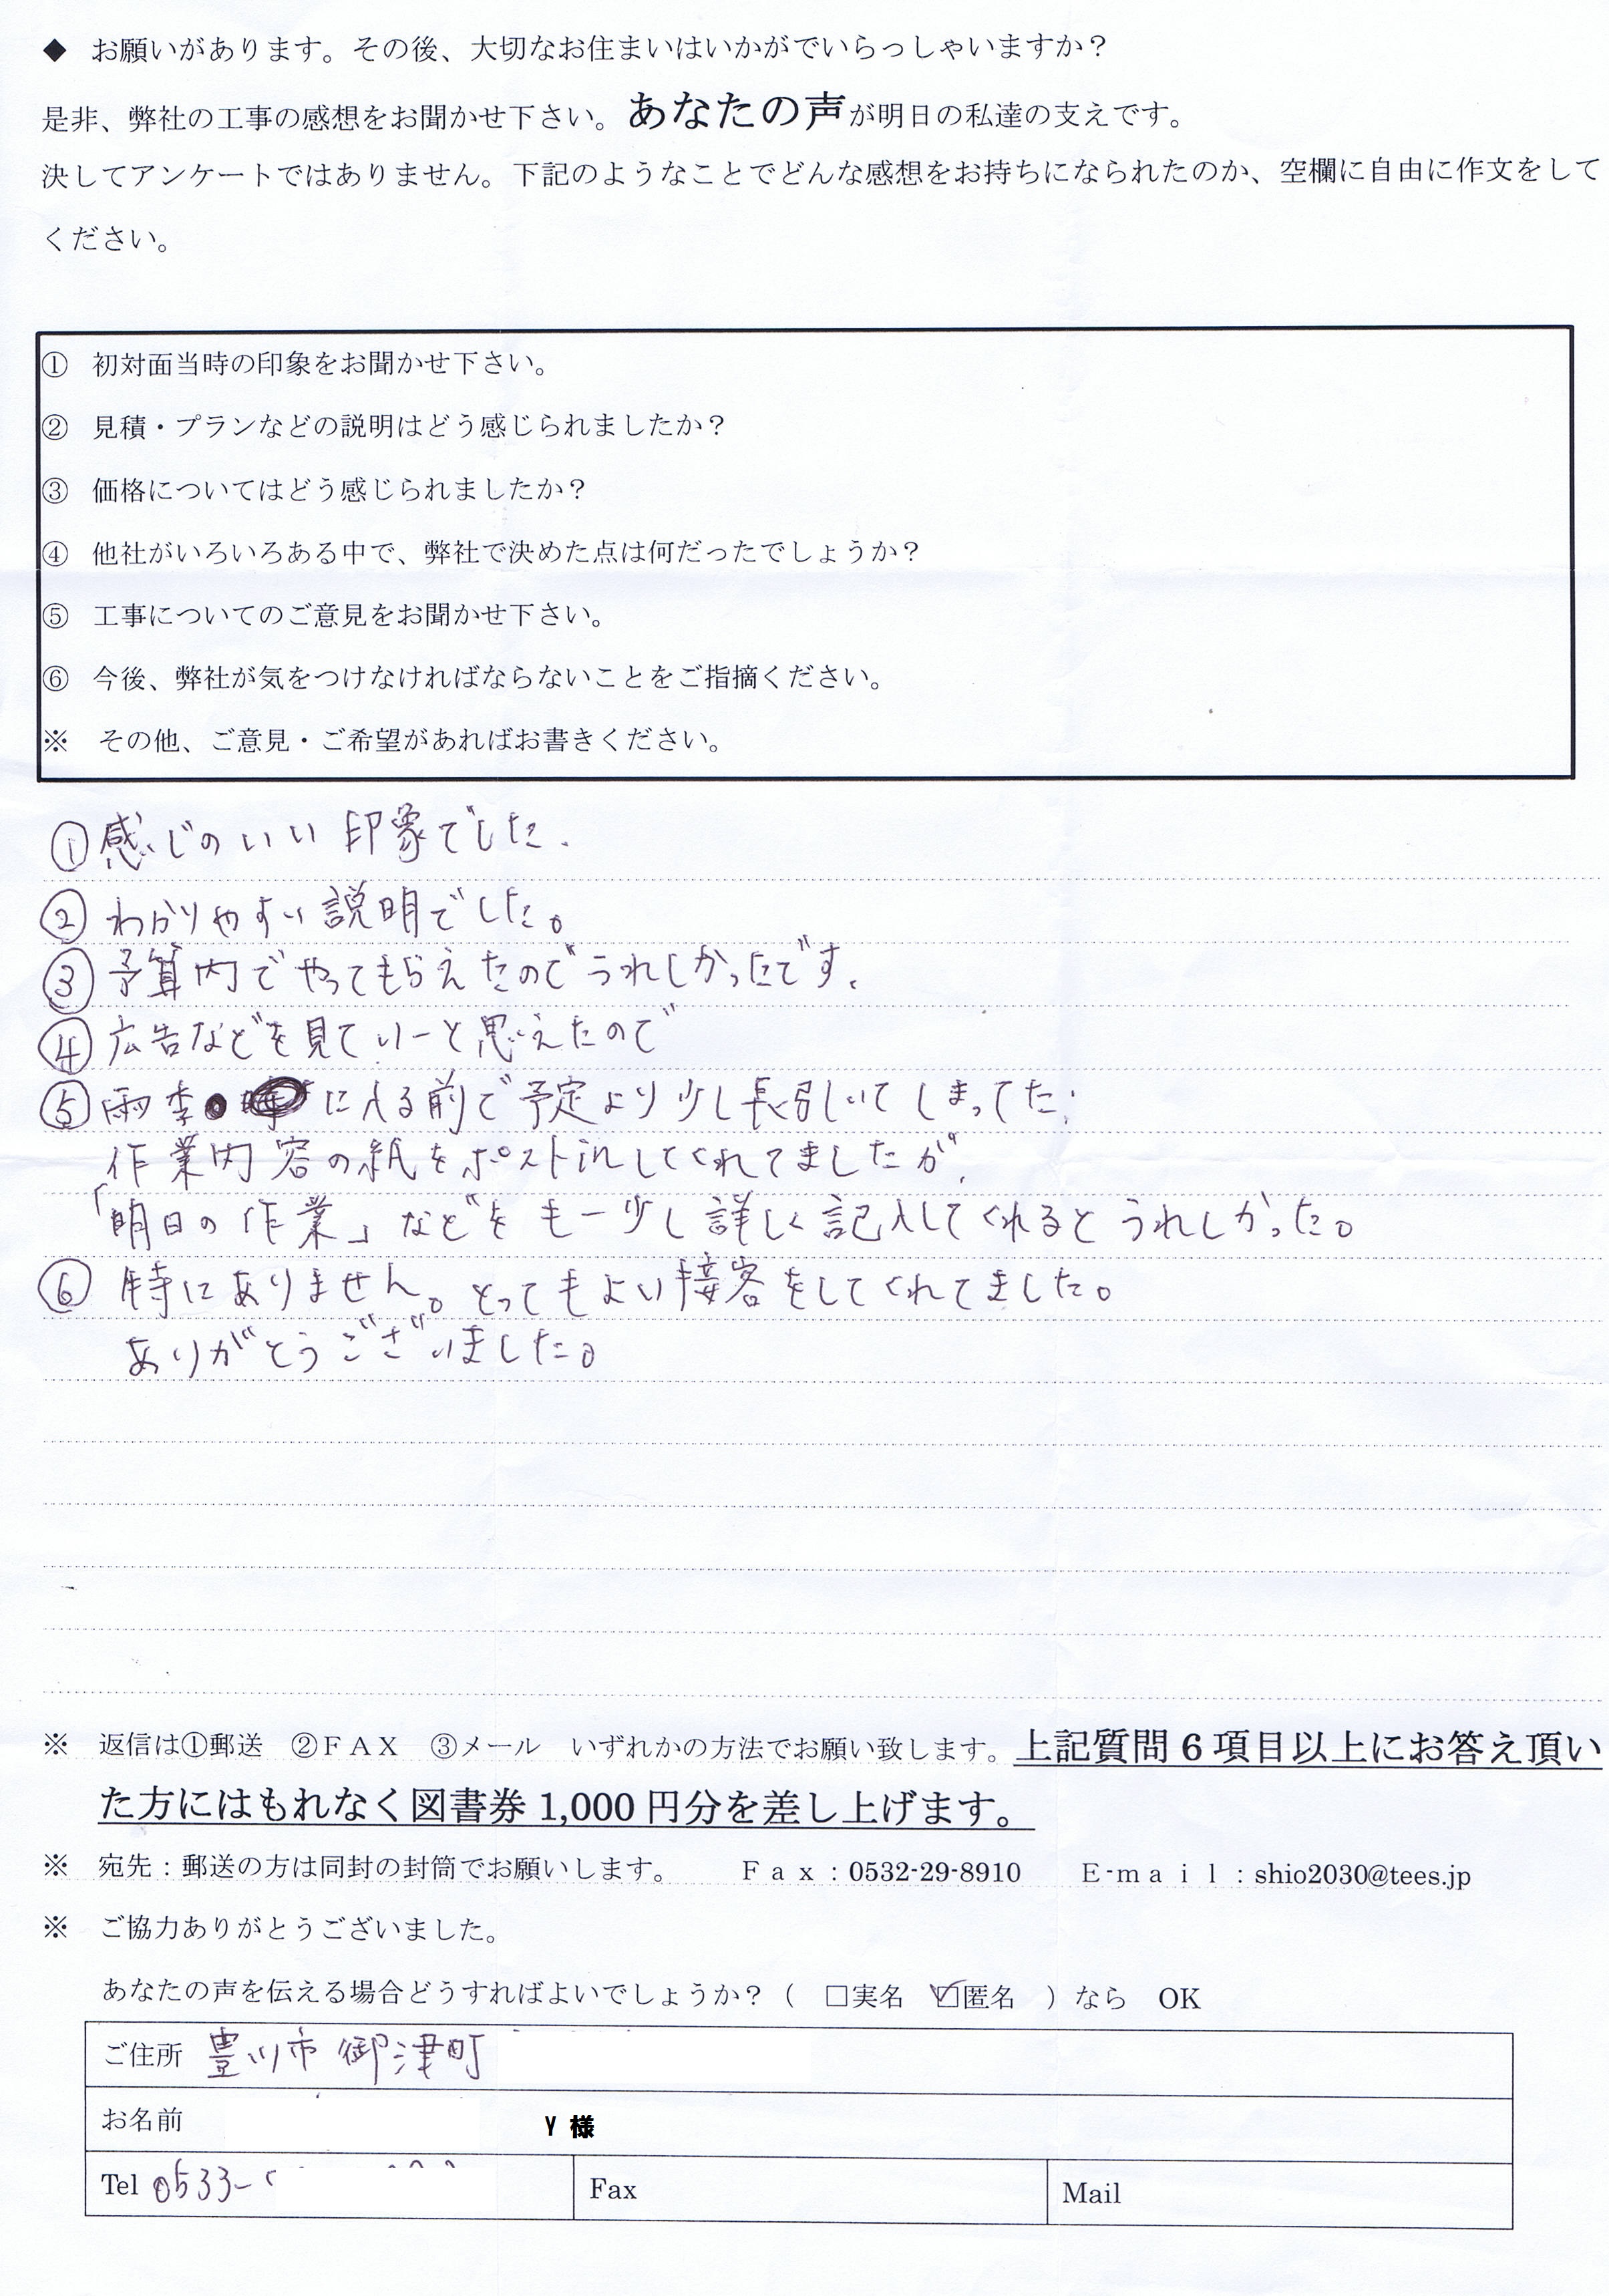 ◆ お願いがあります。その後、大切なお住まいはいかがでいらっしゃいますか？
是非、弊社の工事の感想をお聞かせ下さい。あなたの声が明日の私達の支えです。
決してアンケートではありません。下記のようなことでどんな感想をお持ちになられたのか、空欄に自由に作文をして
ください。
① 初対面当時の印象をお聞かせ下さい。
② 見積・プランなどの説明はどう感じられましたか？
③ 価格についてはどう感じられましたか？
④ 他社がいろいろある中で、弊社で決めた点は何だったでしょうか？
⑤ 工事についてのご意見をお聞かせ下さい。
⑥ 今後、弊社が気をつけなければならないことをご指摘ください。
※ その他、ご意見・ご希望があればお書きください。
① 感じのいい印象でした.
② わかりやすい説明でした。
③ 予算内でやってもらえたのでうれしかったです.
④ 広告などを見ていーと思えたので
⑤ 雨季に入る前で予定より少し長引いてしまってた.
作業内容の紙をポストinしてくれてましたが、
「明日の作業」などをもー少し詳しく記入してくれるとうれしかった。
⑥ 特にありません。とってもよい接客をしてくれてました。
ありがとうございました。
※ 返信は①郵送 ②ＦＡＸ ③メール いずれかの方法でお願い致します。上記質問 6 項目以上にお答え頂い
た方にはもれなく図書券 1,000 円分を差し上げます。
※ 宛先：郵送の方は同封の封筒でお願いします。 Ｆａｘ：0532-29-8910 Ｅ-ｍａｉｌ：shio2030@tees.jp
※ ご協力ありがとうございました。
あなたの声を伝える場合どうすればよいでしょうか？（ □実名 ☑匿名 ）なら OK
ご住所 豊川市御津町
お名前 Y 様
Tel 0533- Fax Mail